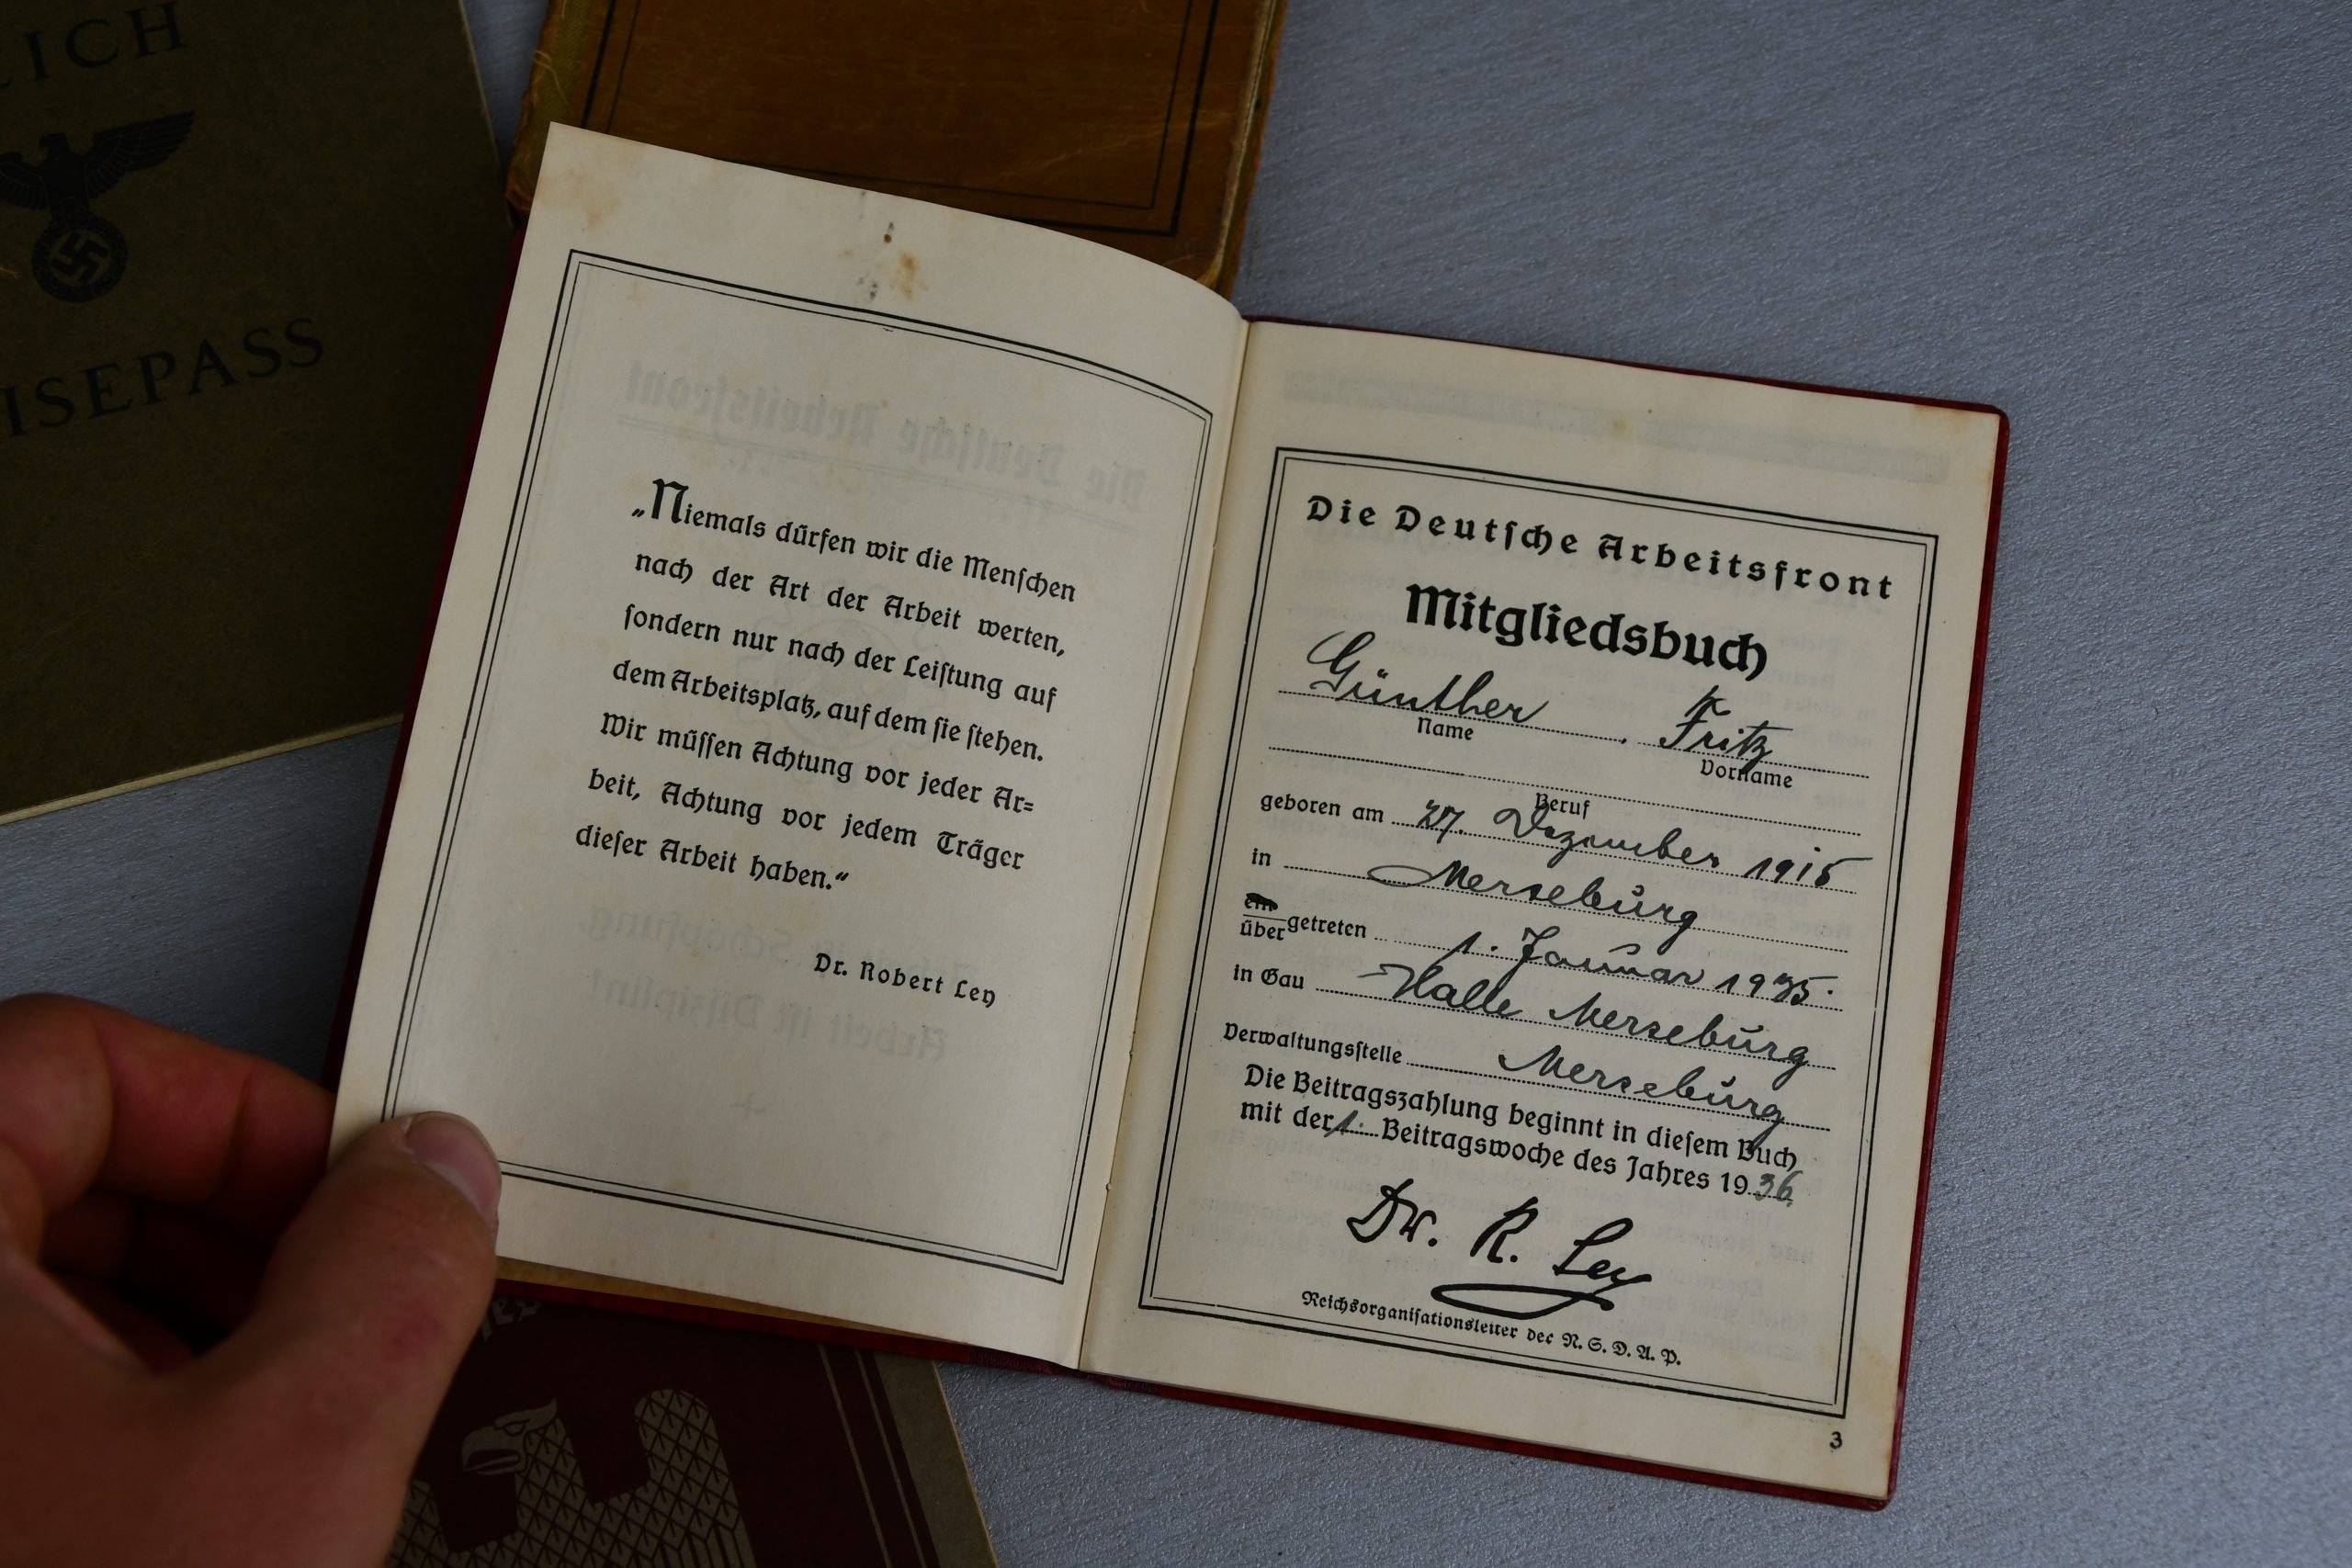 EICH
ISEPASS
„Niemals dürfen wir die Menſchen
nach der Art der Arbeit werten,
ſondern nur nach der Leiſtung auf
dem Arbeitsplatz, auf dem ſie ſtehen.
Wir müſſen Achtung vor jeder Ar=
beit, Achtung vor jedem Träger
dieſer Arbeit haben.“
Dr. Robert Ley
Die Deutſche Arbeitsfront
Mitgliedsbuch
Günther, Fritz
Name Vorname
Beruf
geboren am 27. Dezember 1915
in Merseburg
ein
über getreten 1. Januar 1935.
in Gau Halle Merseburg
Verwaltungsſtelle Merseburg
Die Beitragszahlung beginnt in dieſem Buch
mit der 1. Beitragswoche des Jahres 1936
Dr. R. Ley
Reichsorganiſationsleiter der N. S. D. A. P.
3